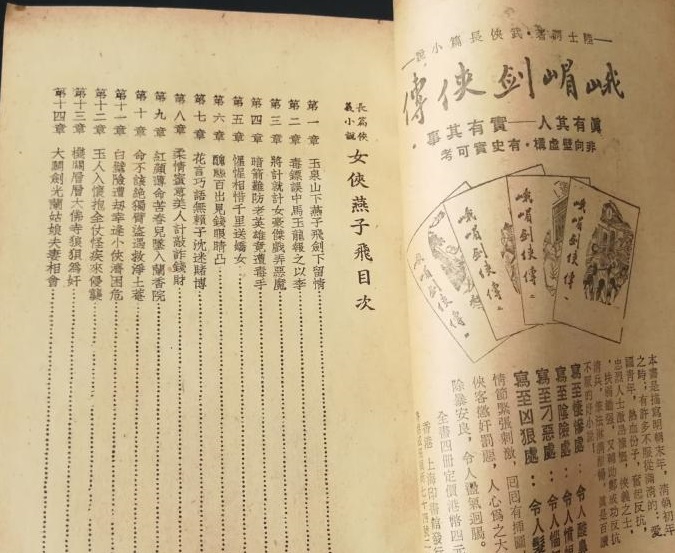 陸士諤著·武俠長篇小說
峨嵋劍俠傳
眞有其人——實有其事
非向壁虛構·有史實可考
峨嵋劍俠傳
峨嵋劍俠傳
峨嵋劍俠傳
峨嵋劍俠傳
本書是描寫明朝末年，清朝初年
之時，有許多不服從滿清的：愛
國青年，熱血份子，奮起反抗，
俠義之士，
，扶弱鋤強，又輔助鄭成功反抗
清兵，眞是百讀
不厭的好小說！
寫至悽慘處：令人酸鼻
寫至陰險處：令人
寫至刁惡處：令人惱
寫至凶狠處：令人髮
情節緊張刺激，回回有揷圖
俠客懲奸罰惡，人心爲之大
除暴安良，令人盪氣迴腸。
全書四冊定價港幣四元
香港 上海印書館發行
長篇俠義小說 女俠燕子飛目次
第一章 玉泉山下燕子飛劍下留情
第二章 毒鏢誤中馬玉龍報之以李
第三章 將計就計女豪傑戲弄惡魔
第四章 暗箭難防老英雄竟遭毒手
第五章 惺惺相惜千里送嬌女
第六章 醜態百出見錢眼睛凸
第七章 花言巧語無賴子沈迷賭博
第八章 柔情蜜意美人計敲詐錢財
第九章 紅顏薄命苦春兒墜入蘭香院
第十章 命不該絕獨臂盜遇救淨土菴
第十一章 白璧險遭刼幸逢小俠濟困危
第十二章 玉人入懷抱金仗怪疾來侵襲
第十三章 樓閣層層大佛寺狼狽爲奸
第十四章 大願劍光蘭姑娘夫妻相會